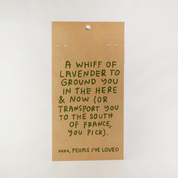 A WHIFF OF
LAVENDER TO
GROUND YOU
IN THE HERE
& NOW (OR
TRANSPORT YOU
TO THE SOUTH
OF FRANCE,
YOU PICK).
xxxx, PEOPLE I'VE LOVED